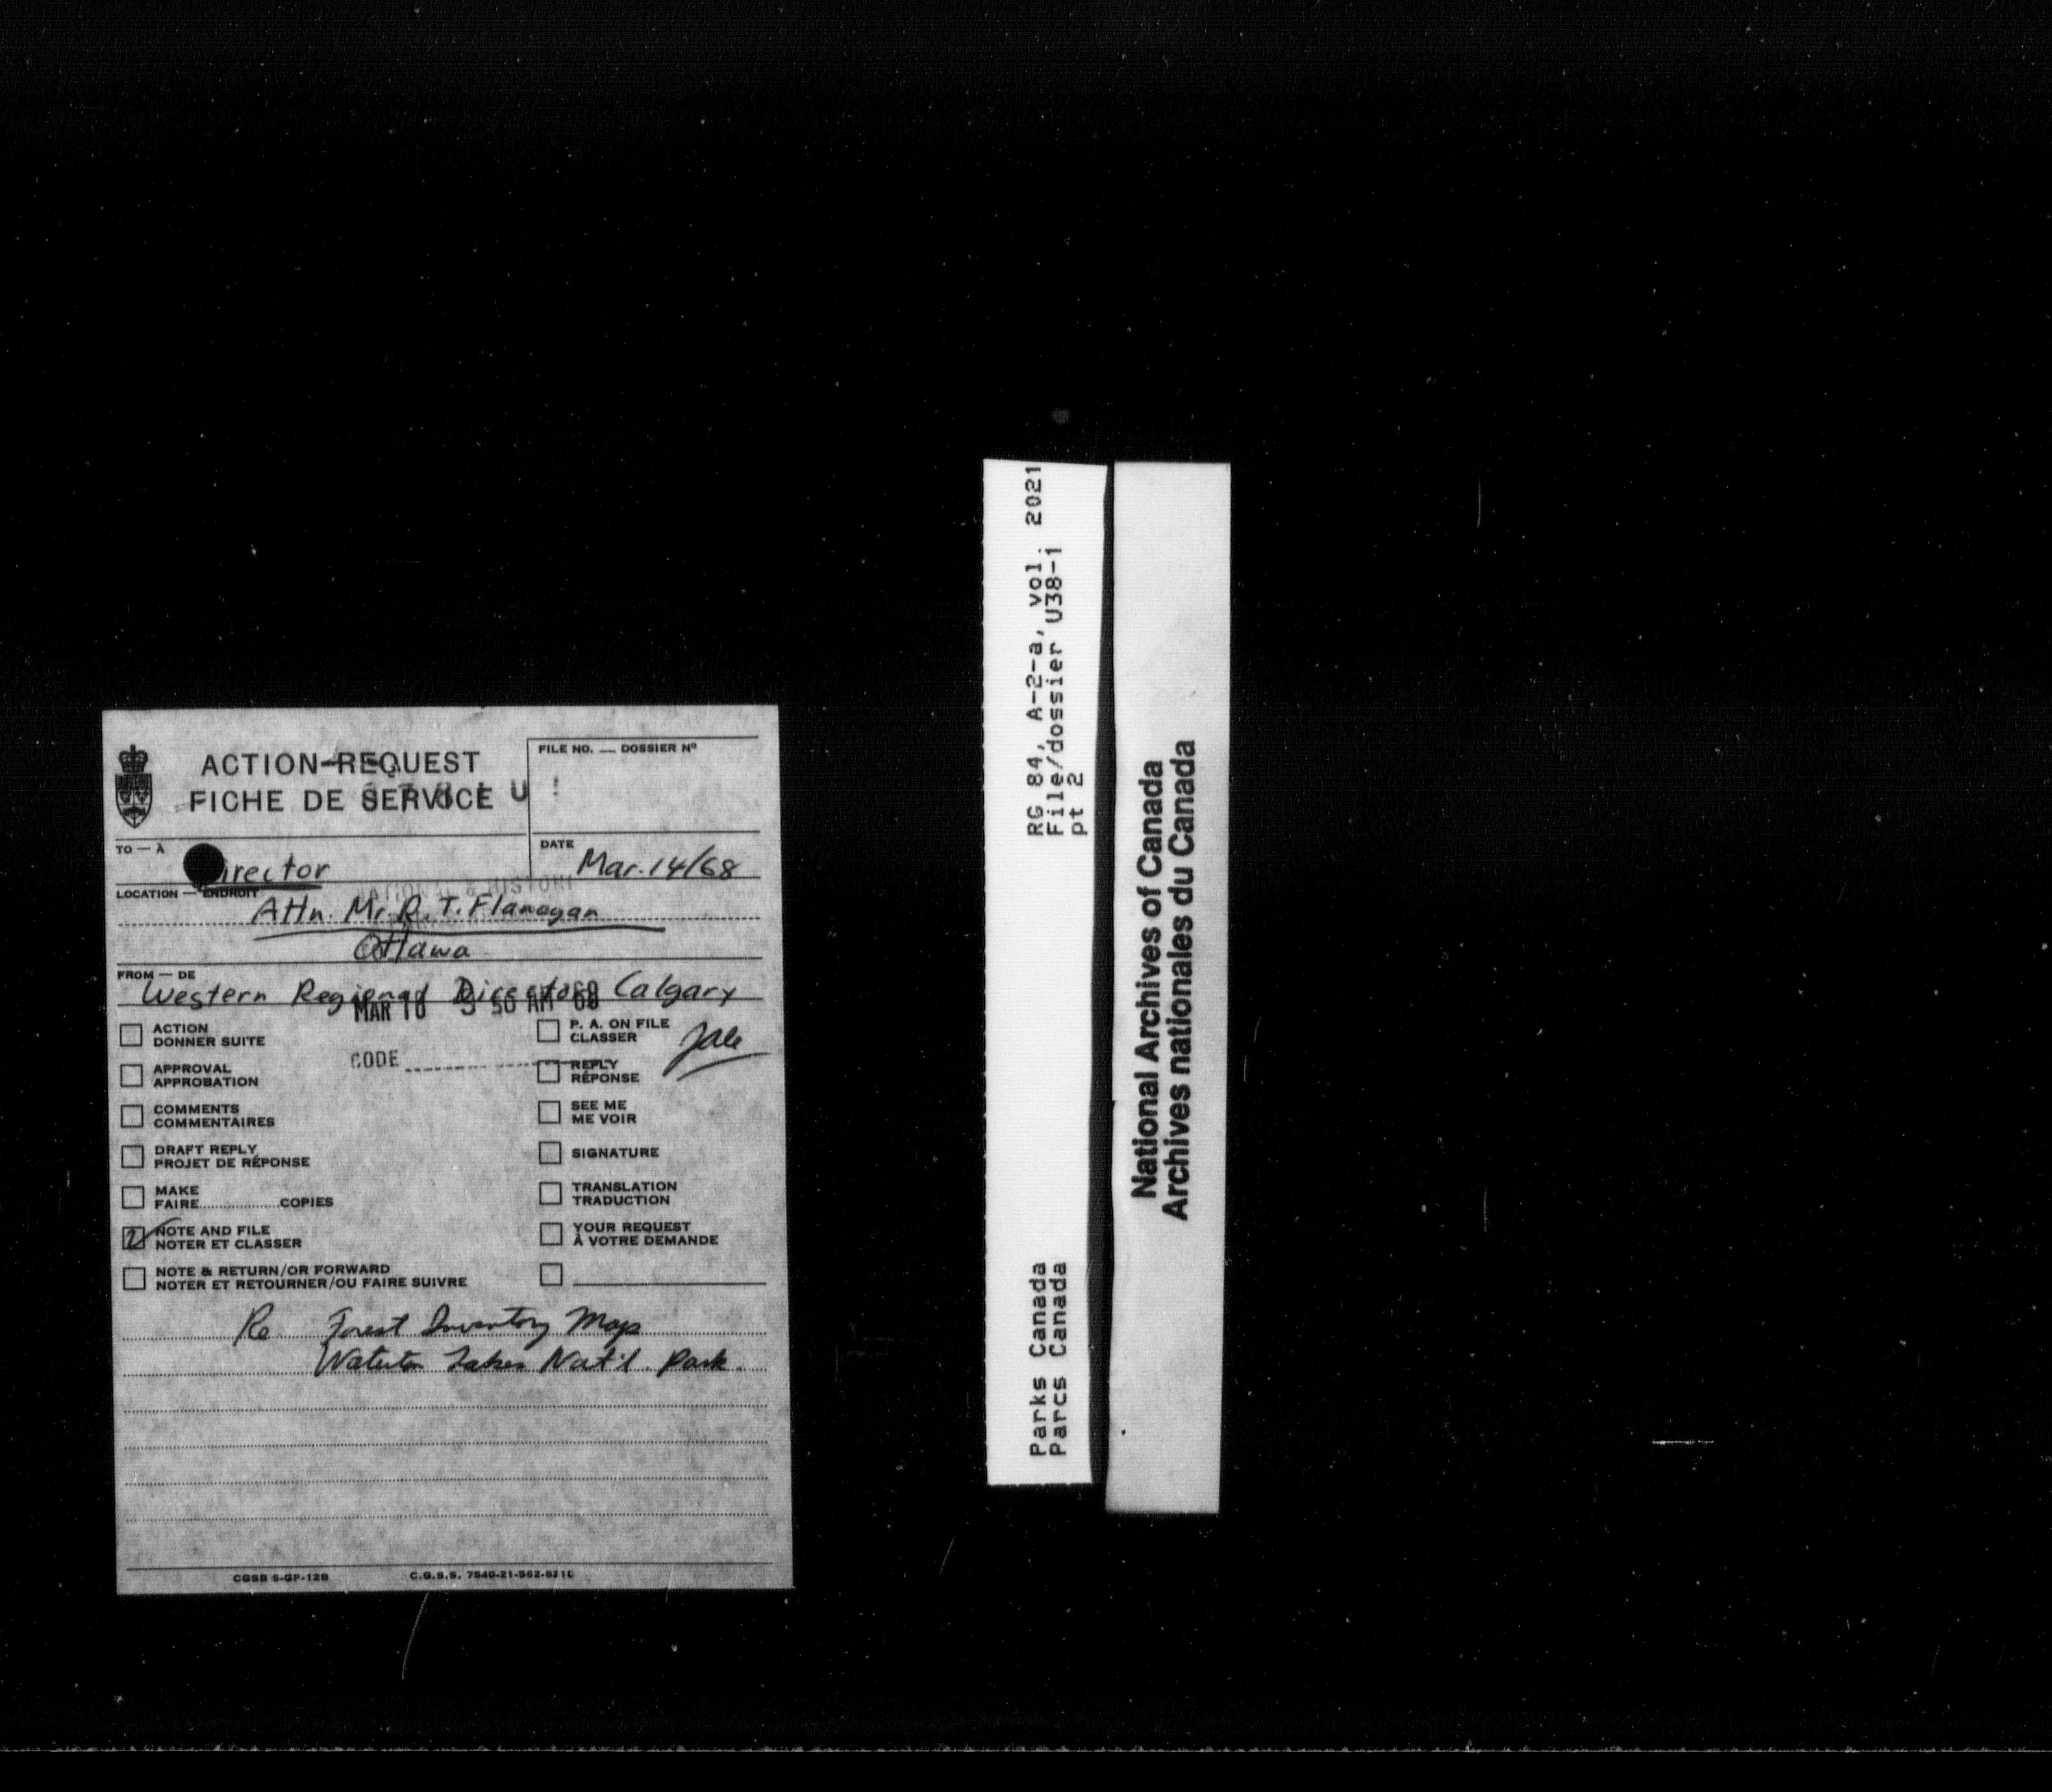 ACTION-REQUEST
FICHE DE SERVICE
FILE NO. — DOSSIER Nº
TO — À
Director
DATE
Mar. 14/68
LOCATION — ENDROIT
Attn. Mr. R. T. Flanagan
Ottawa
FROM — DE
Western Regional Director Calgary
ACTION
DONNER SUITE
APPROVAL
APPROBATION
COMMENTS
COMMENTAIRES
DRAFT REPLY
PROJET DE RÉPONSE
MAKE
FAIRE..................COPIES
NOTE AND FILE
NOTER ET CLASSER
NOTE & RETURN/OR FORWARD
NOTER ET RETOURNER/OU FAIRE SUIVRE
CODE
P. A. ON FILE
CLASSER
REPLY
RÉPONSE
SEE ME
ME VOIR
SIGNATURE
TRANSLATION
TRADUCTION
YOUR REQUEST
À VOTRE DEMANDE
Re Forest Inventory Map
Waterton Lakes Nat'l. Park.
CGSB 6-GP-12B
RG 84, A-2-a, vol. 2021
File/dossier U38-1
pt 2
Parks Canada
Parcs Canada
National Archives of Canada
Archives nationales du Canada